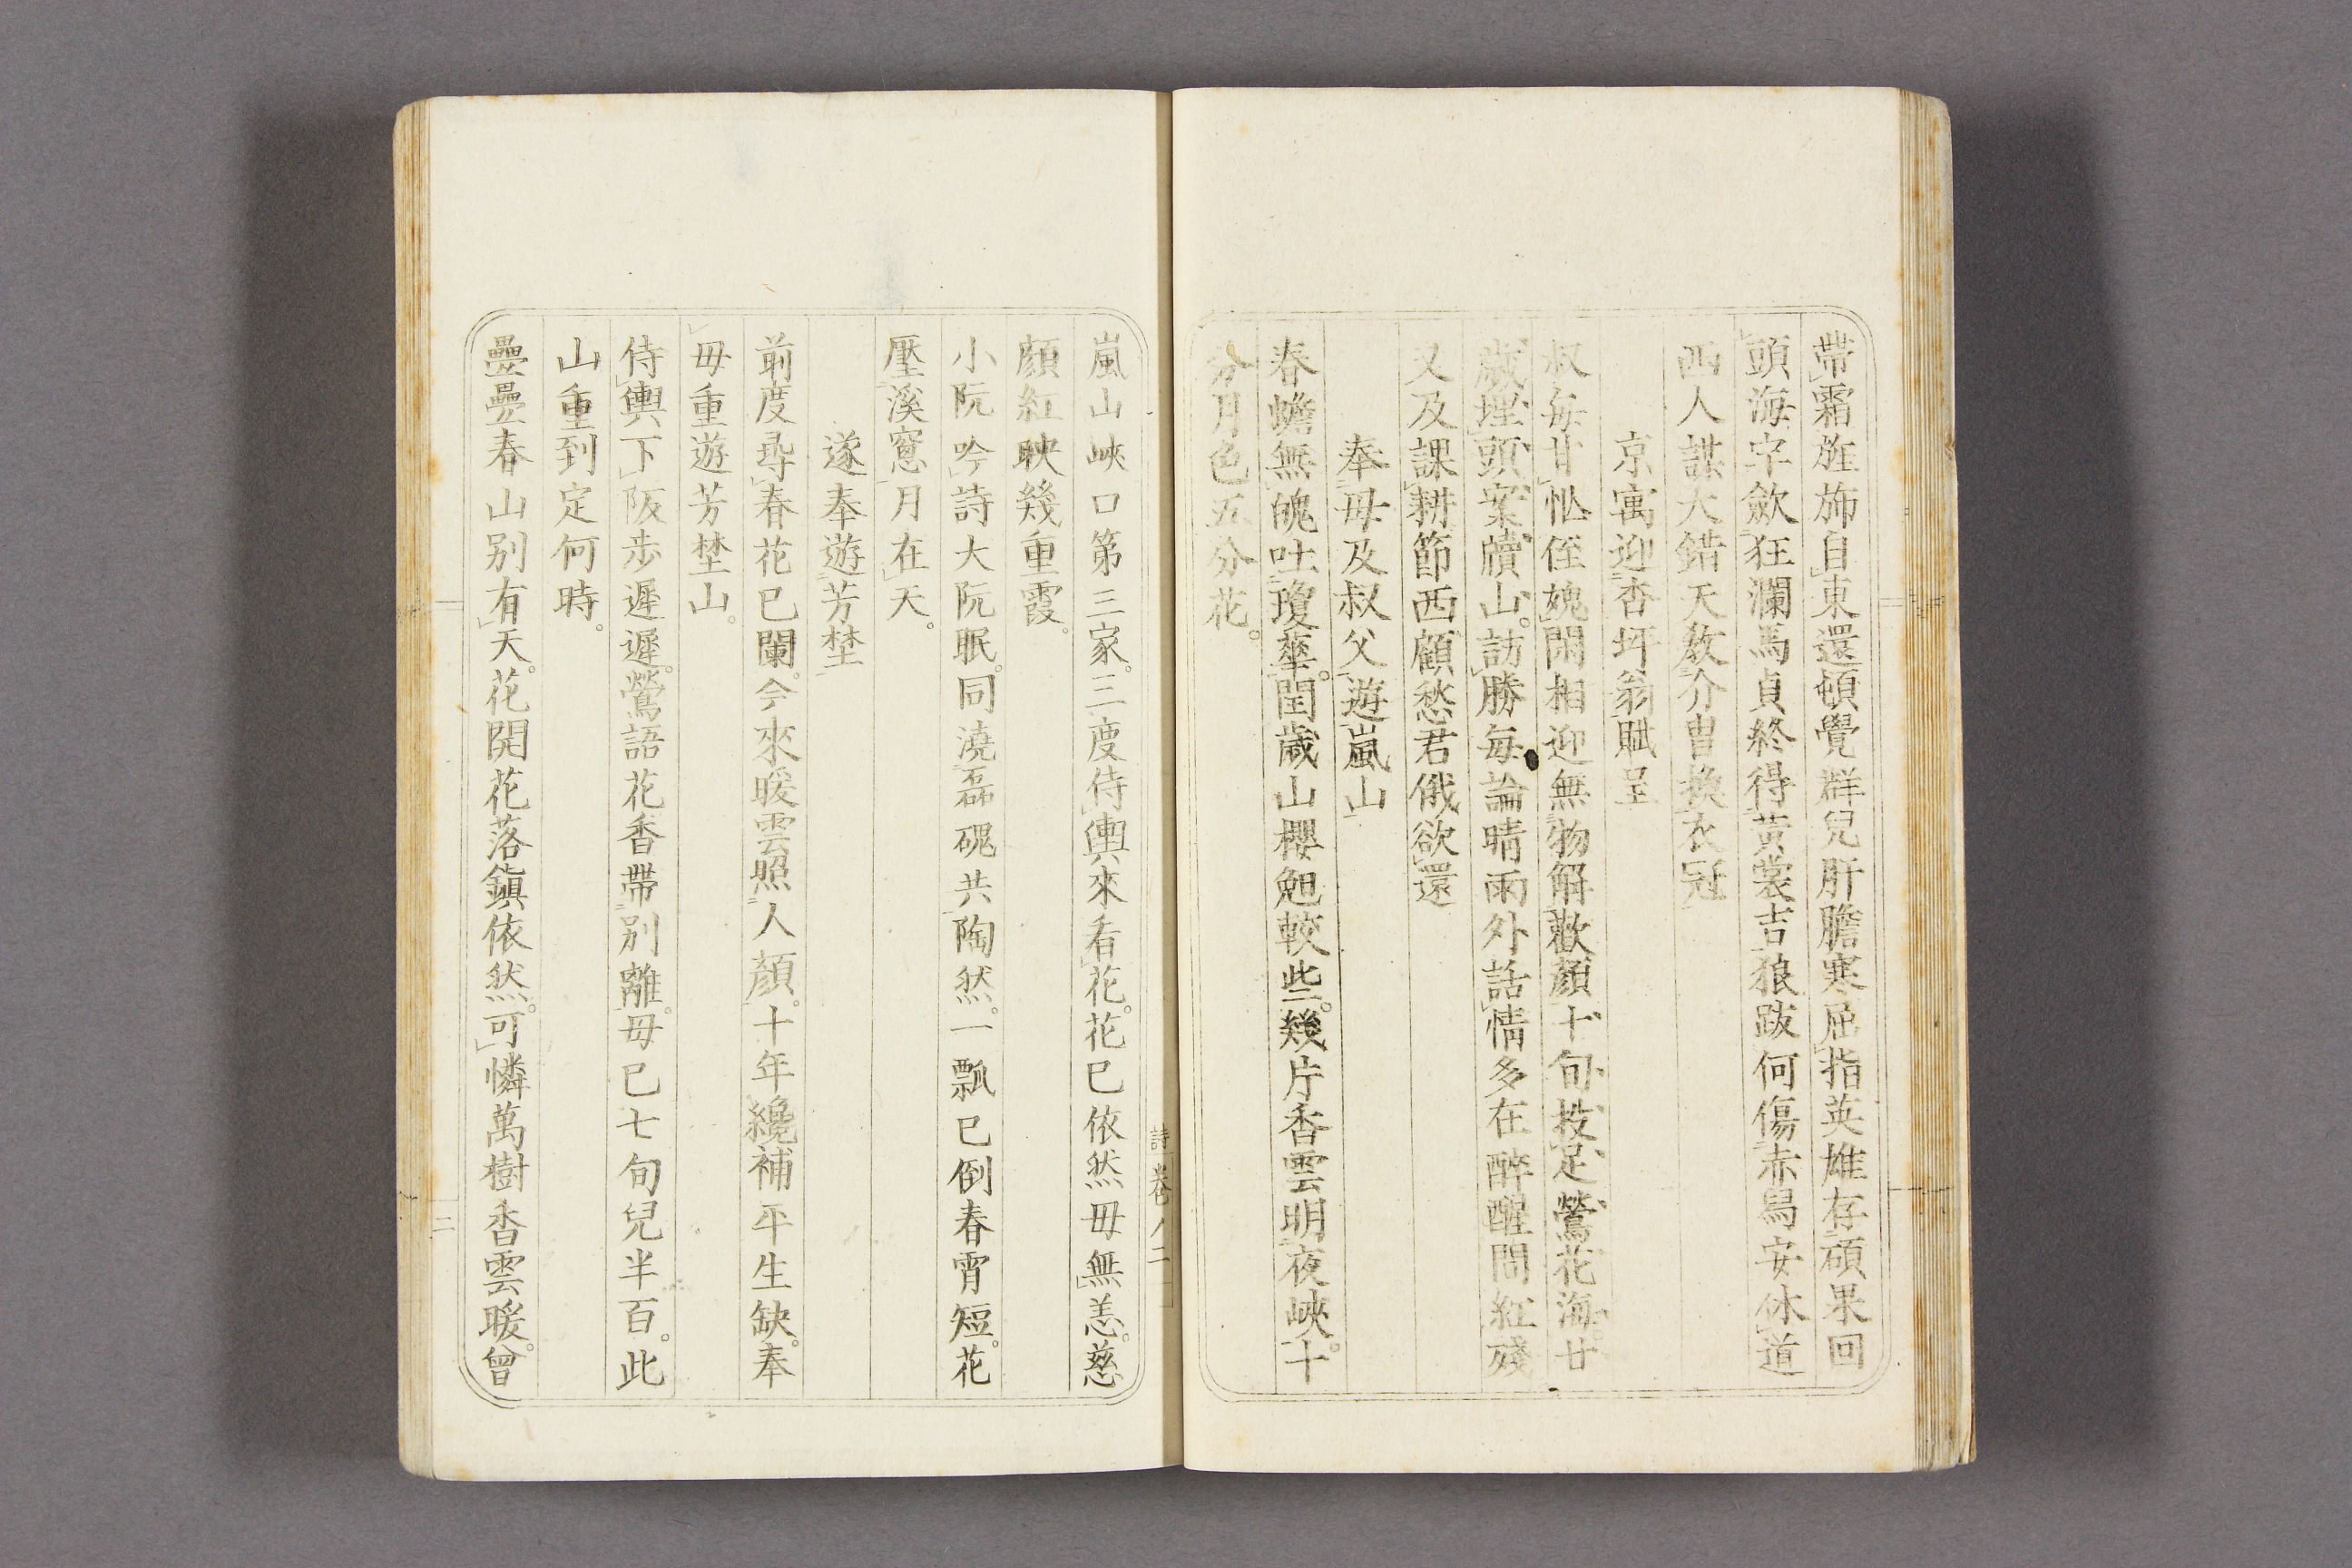 帶霜旌旆自東還頓覺群兒肝膽寒屈指英雄存碩果回
頭海宇歛狂瀾馬貞終得黃裳吉狼跋何傷赤舄安休道
西人謀大錯天教介冑換衣冠
京寓迎杏坪翁賦呈
叔每廿忪侄媿閑相迎無物解歡顏十旬投足鶯花海廿
歲埋頭案牘山。訪勝每論晴雨外話情多在醉醒間紅殘
又及課耕節西顧愁君俄欲還
奉母及叔父遊嵐山
春蟾無魄吐瓊華。閏歲山櫻兔較些。幾片香雲明夜峽。十
分月色五分花。
嵐山峽口第三家。三度侍輿來看花。花已依然毋無恙。慈
顏紅映幾重霞。
小阮吟詩大阮眠。同澆磊磈共陶然。一瓢已倒春宵短。花
壓溪窻月在天。
遂奉遊芳埜
前度尋春花已闌。今來暖雲照人顏。十年纔補平生缺。奉
毋重遊芳埜山。
侍輿下阪步遲遲。鶯語花香帶別離。毋已七旬兒半百。此
山重到定何時。
疊疊春山別有天。花開花落鎮依然。可憐萬樹香雲暖。曾
詩 卷八 二
二